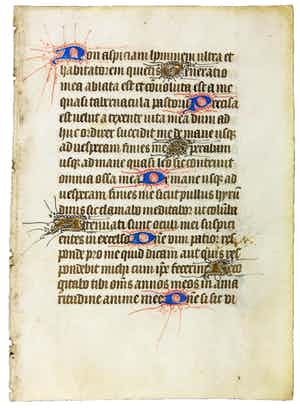 Non aspiciam hominem ultra et
habitatorem quietis Generatio
mea ablata est et convoluta est a me
quasi tabernaculum pastorum Precisa
est velut a texente vita mea dum ad
huc ordirer succidit me de mane usq;
ad vesperam finies me Sperabam
usq; ad mane quasi leo sic contrivit
omnia ossa mea De mane usq; ad
vesperam finies me sicut pullus hyrun
dinis sic clamabo meditabor ut columba
Attenuati sunt oculi mei suspici
entes in excelso Dñe vim patior res
ponde pro me quid dicam aut quid res
pondebit michi cum ipse fecerim Reco
gitabo tibi oms annos meos in ama
ritudine anime mee Dñe si sic vi